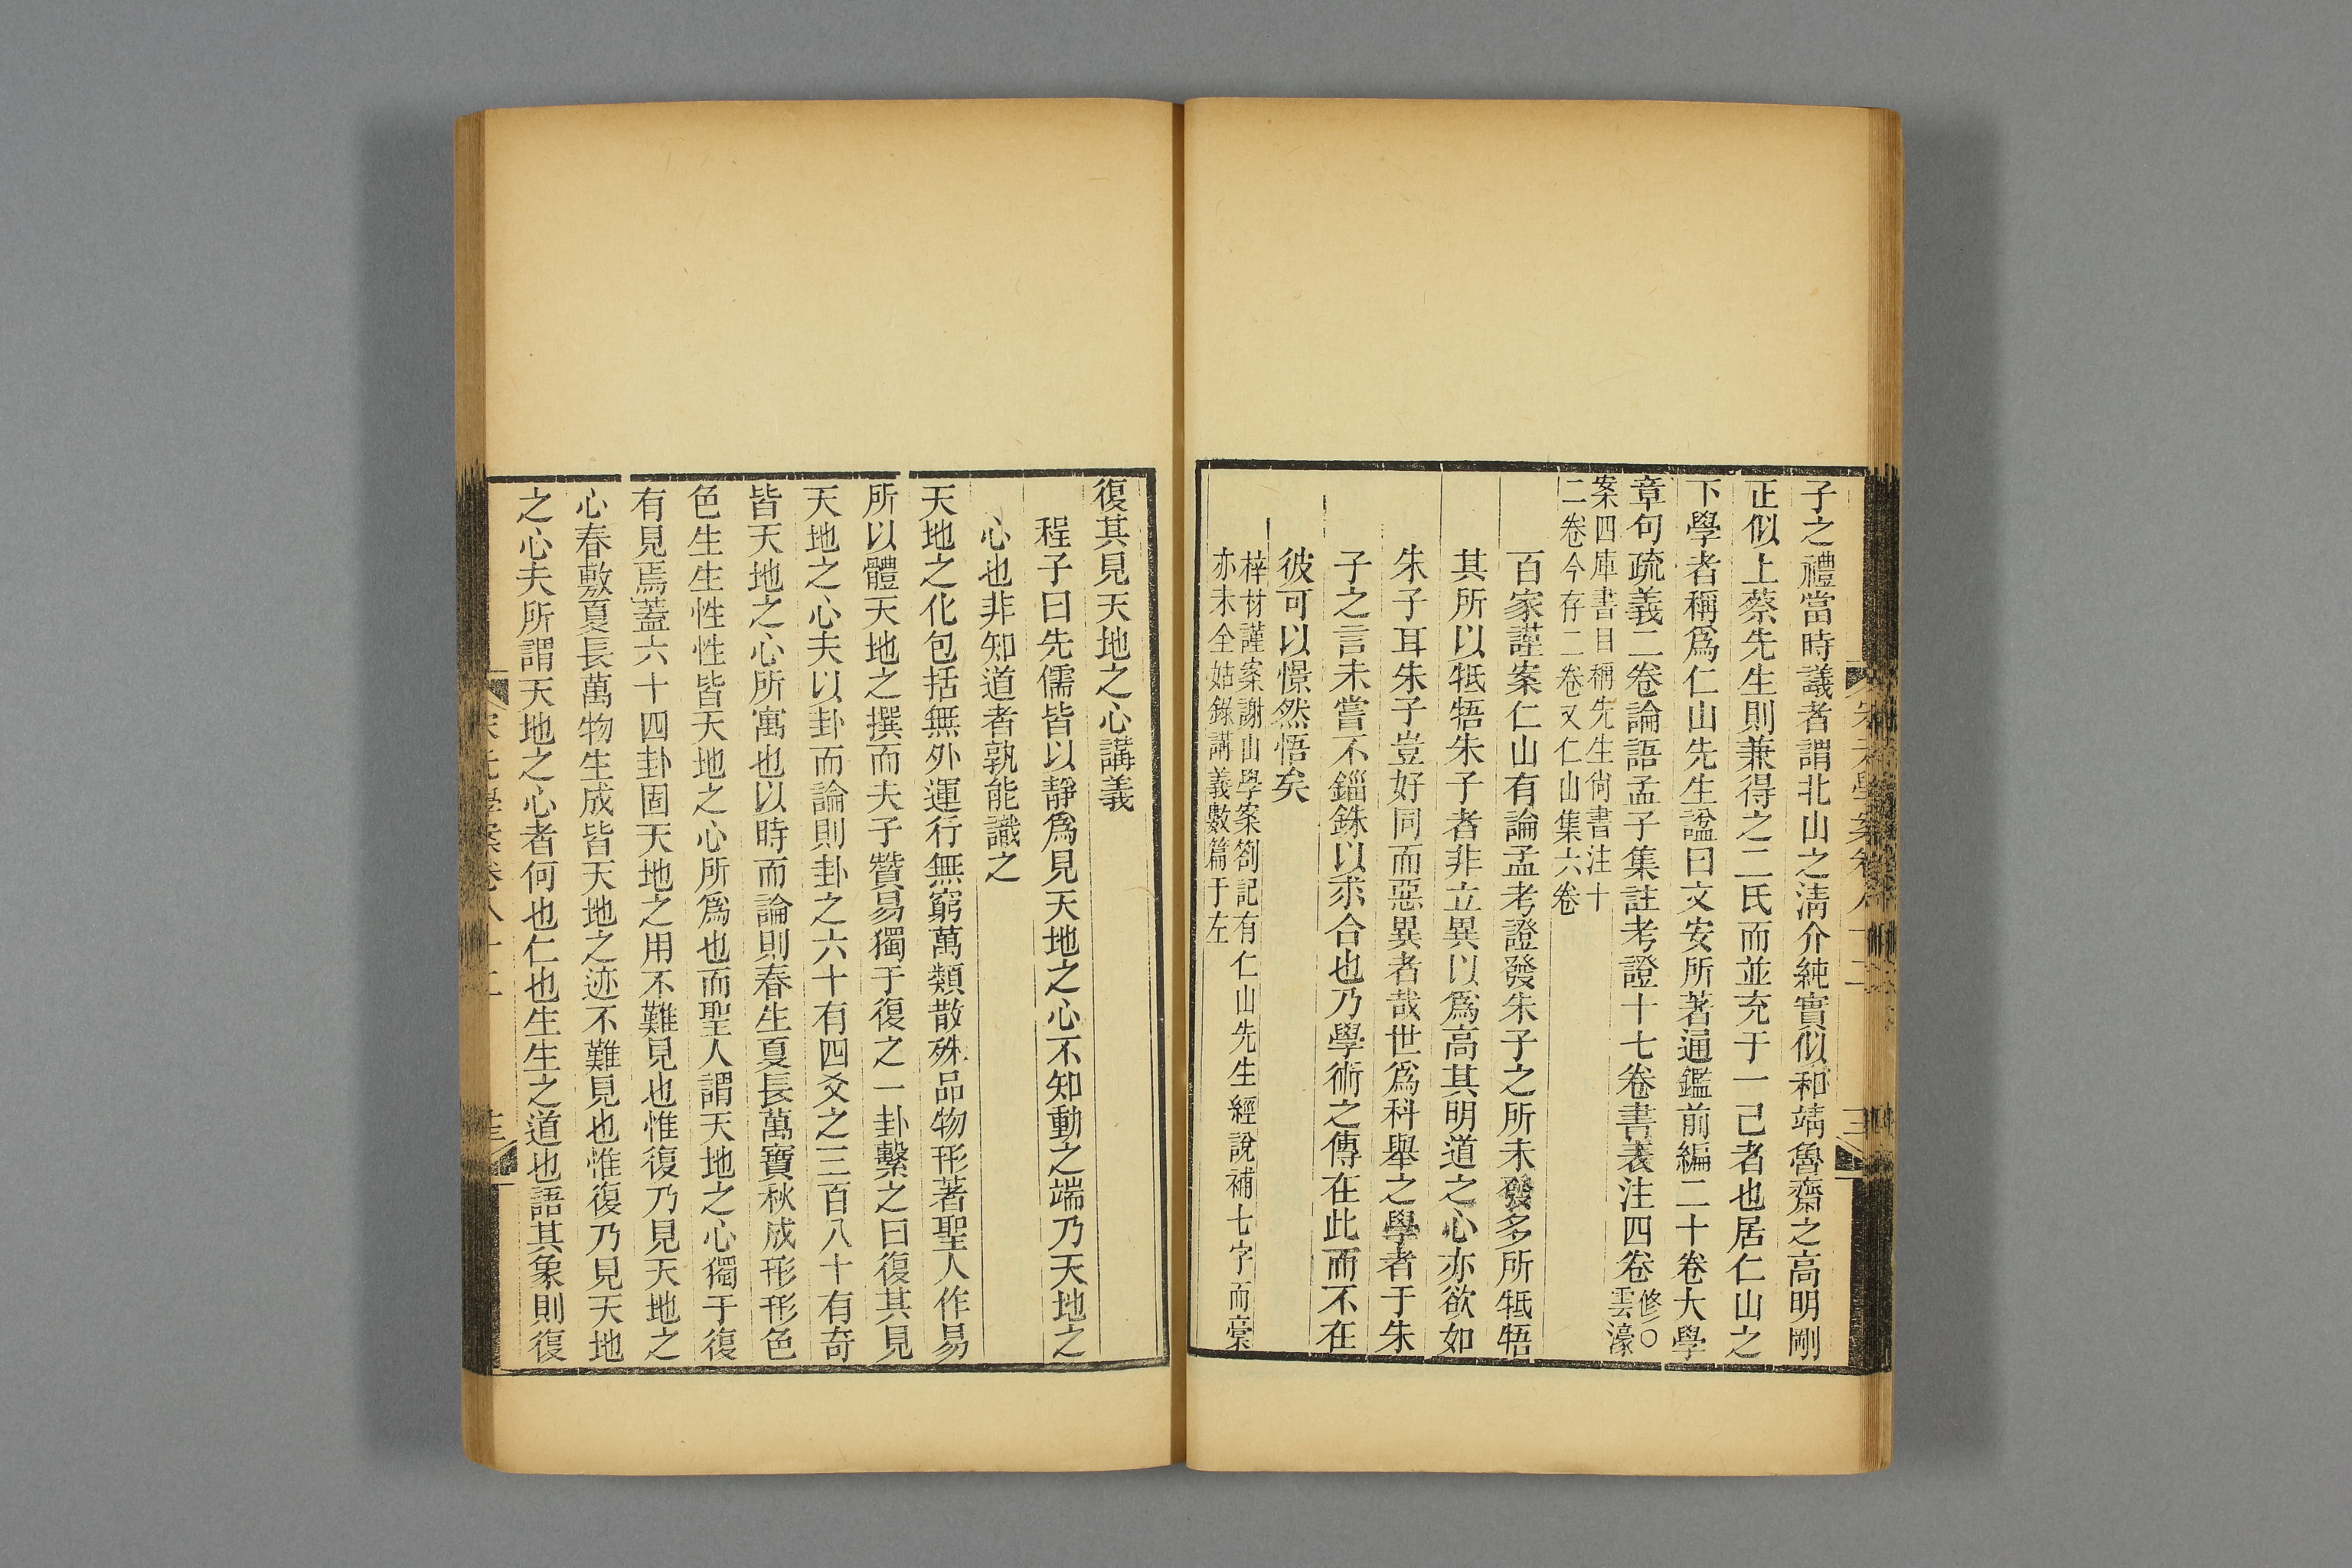 子之禮當時議者謂北山之淸介純實似和靖魯齋之高明剛
正似上蔡先生則兼得之二氏而並充于一己者也居仁山之
下學者稱爲仁山先生諡曰文安所著通鑑前編二十卷大學
章句疏義二卷論語孟子集註考證十七卷書表注四卷修○雲濠
案四庫書目稱先生尙書注十
二卷今存二卷又仁山集六卷
百家謹案仁山有論孟考證發朱子之所未發多所牴牾
其所以牴牾朱子者非立異以爲高其明道之心亦欲如
朱子耳朱子豈好同而惡異者哉世爲科舉之學者于朱
子之言未嘗不錙銖以求合也乃學術之傳在此而不在
彼可以憬然悟矣
梓材謹案謝山學案劄記有仁山先生經說補七字而稾
亦未全姑錄講義數篇于左
復其見天地之心講義
程子曰先儒皆以靜爲見天地之心不知動之端乃天地之
心也非知道者孰能識之
天地之化包括無外運行無窮萬類散殊品物形著聖人作易
所以體天地之撰而夫子贊易獨于復之一卦繫之曰復其見
天地之心夫以卦而論則卦之六十有四爻之三百八十有奇
皆天地之心所寓也以時而論則春生夏長萬寶秋成形形色
色生生性性皆天地之心所爲也而聖人謂天地之心獨于復
有見焉蓋六十四卦固天地之用不難見也惟復乃見天地之
心春敷夏長萬物生成皆天地之迹不難見也惟復乃見天地
之心夫所謂天地之心者何也仁也生生之道也語其象則復
宋元學案卷八十二